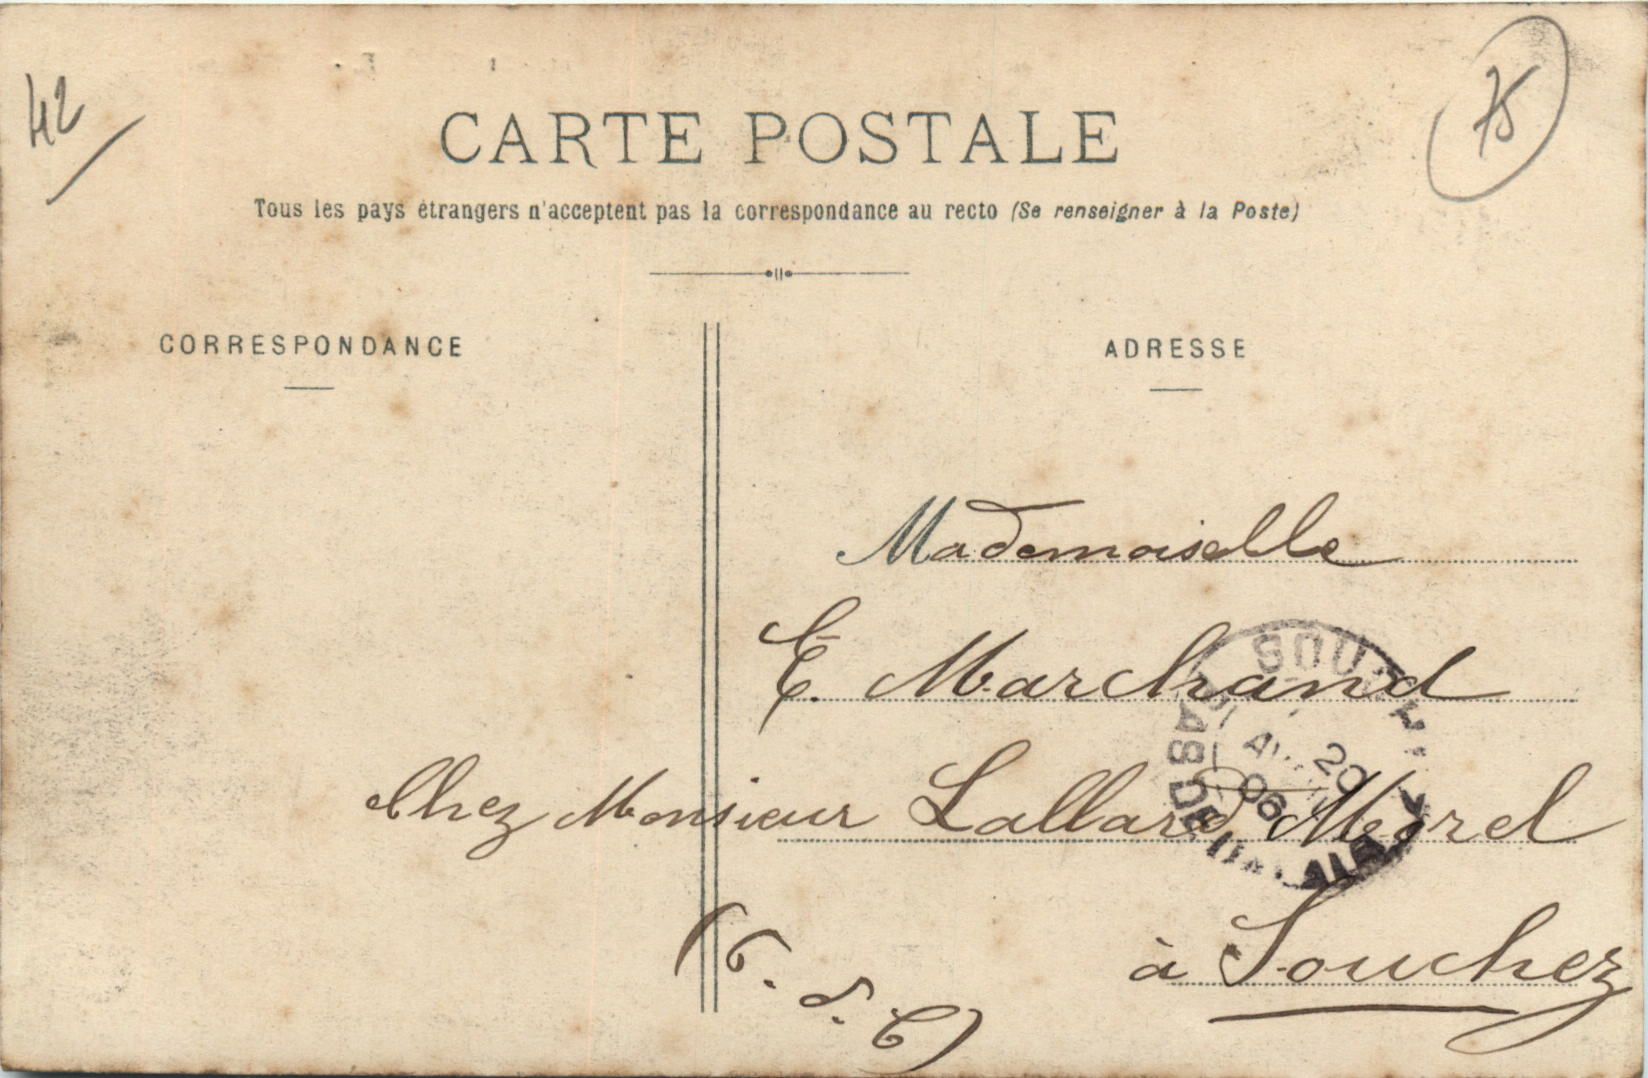 42
75
CARTE POSTALE
Tous les pays étrangers n'acceptent pas la correspondance au recto (Se renseigner à la Poste)
CORRESPONDANCE
ADRESSE
Mademoiselle
E. Marchand
Chez Monsieur Lallard Morel
à Souchez
(P. d. C)
20
06